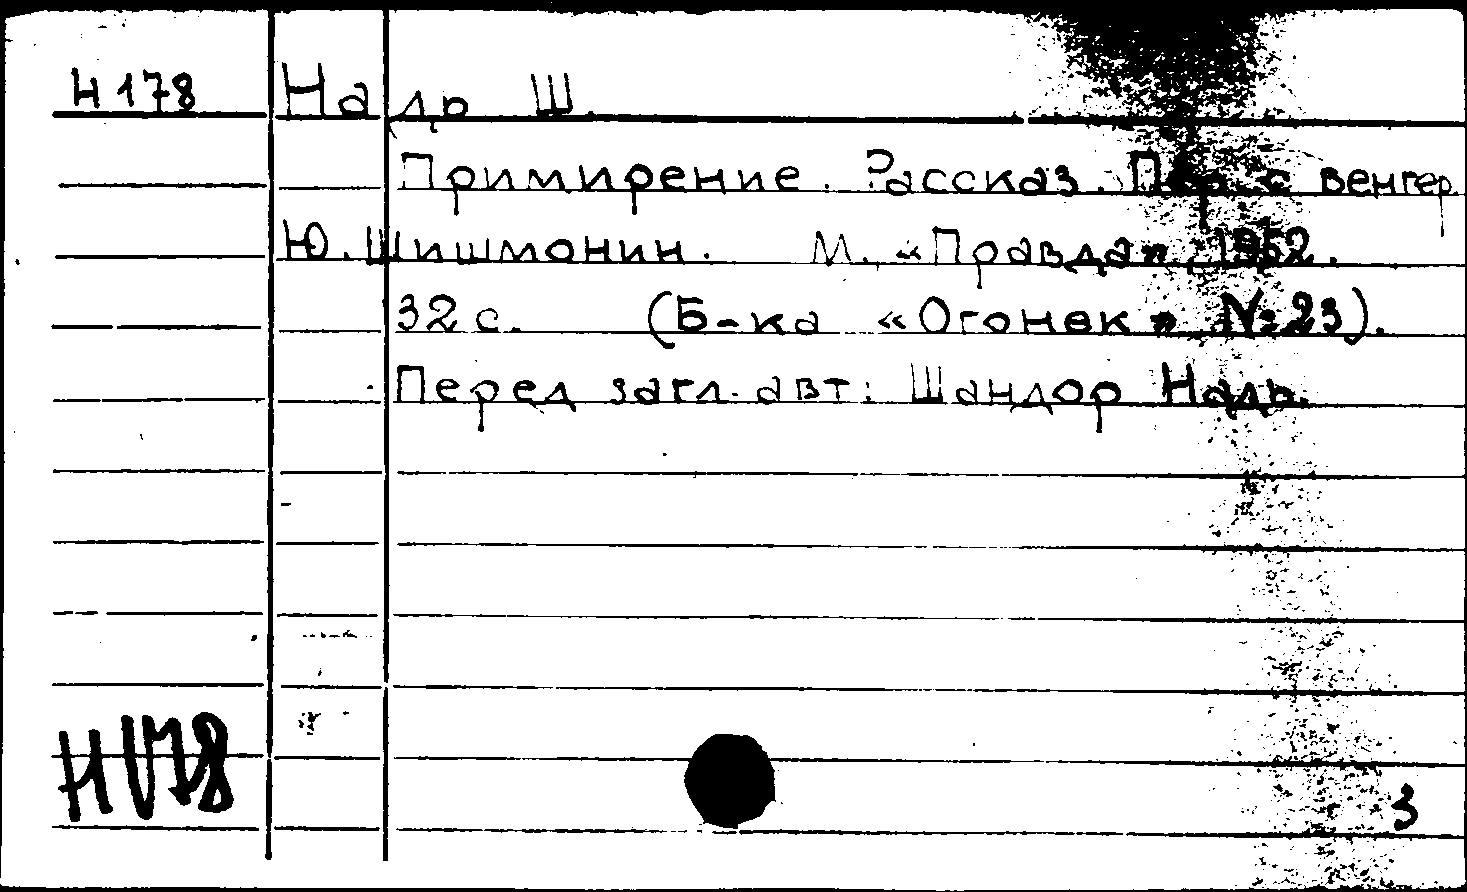 Н178 Надь Ш.
Примирение. Рассказ. Пер. с венгер.
Ю. Шишмонин. М. «Правда», 1952.
32 с. (Б-ка «Огонек» № 23).
Перед загл. авт: Шандор Надь.
Н178
3